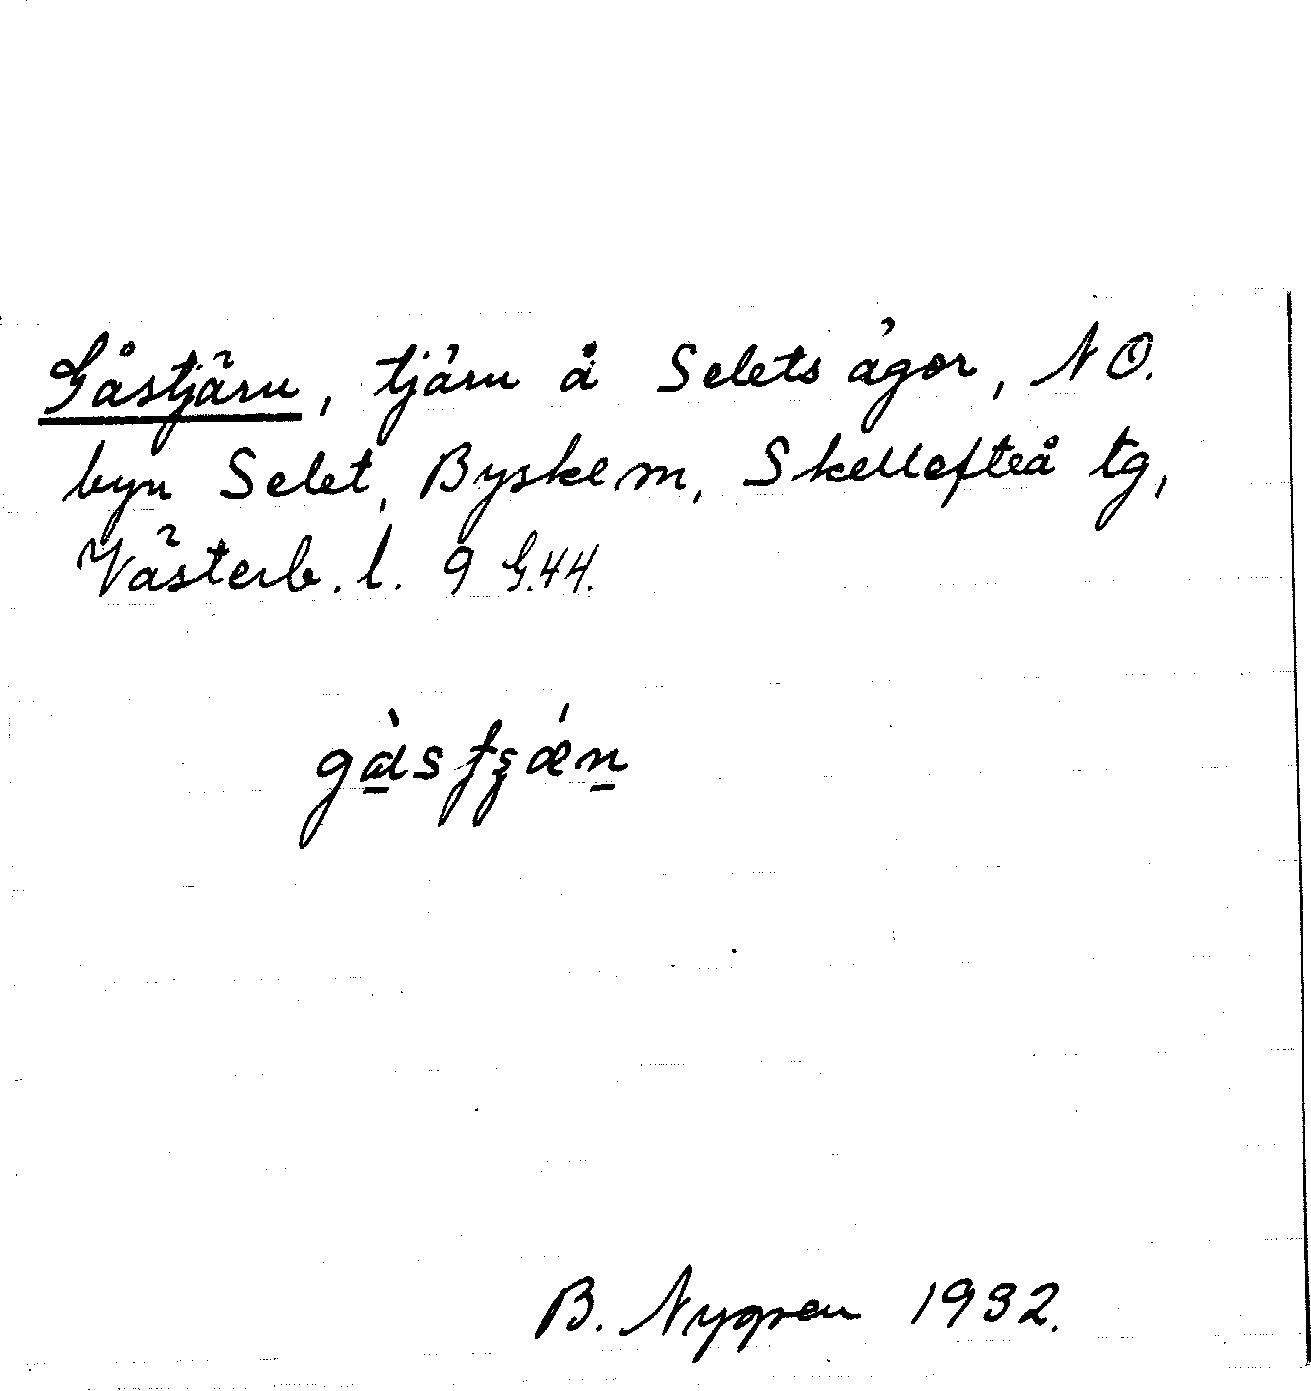 Gåstjärn, tjärn å Selets ägor, NO.
byn Selet, Byske sn, Skellefteå tg,
Västerb. l. 9 G.44.
B. Nygren 1932.